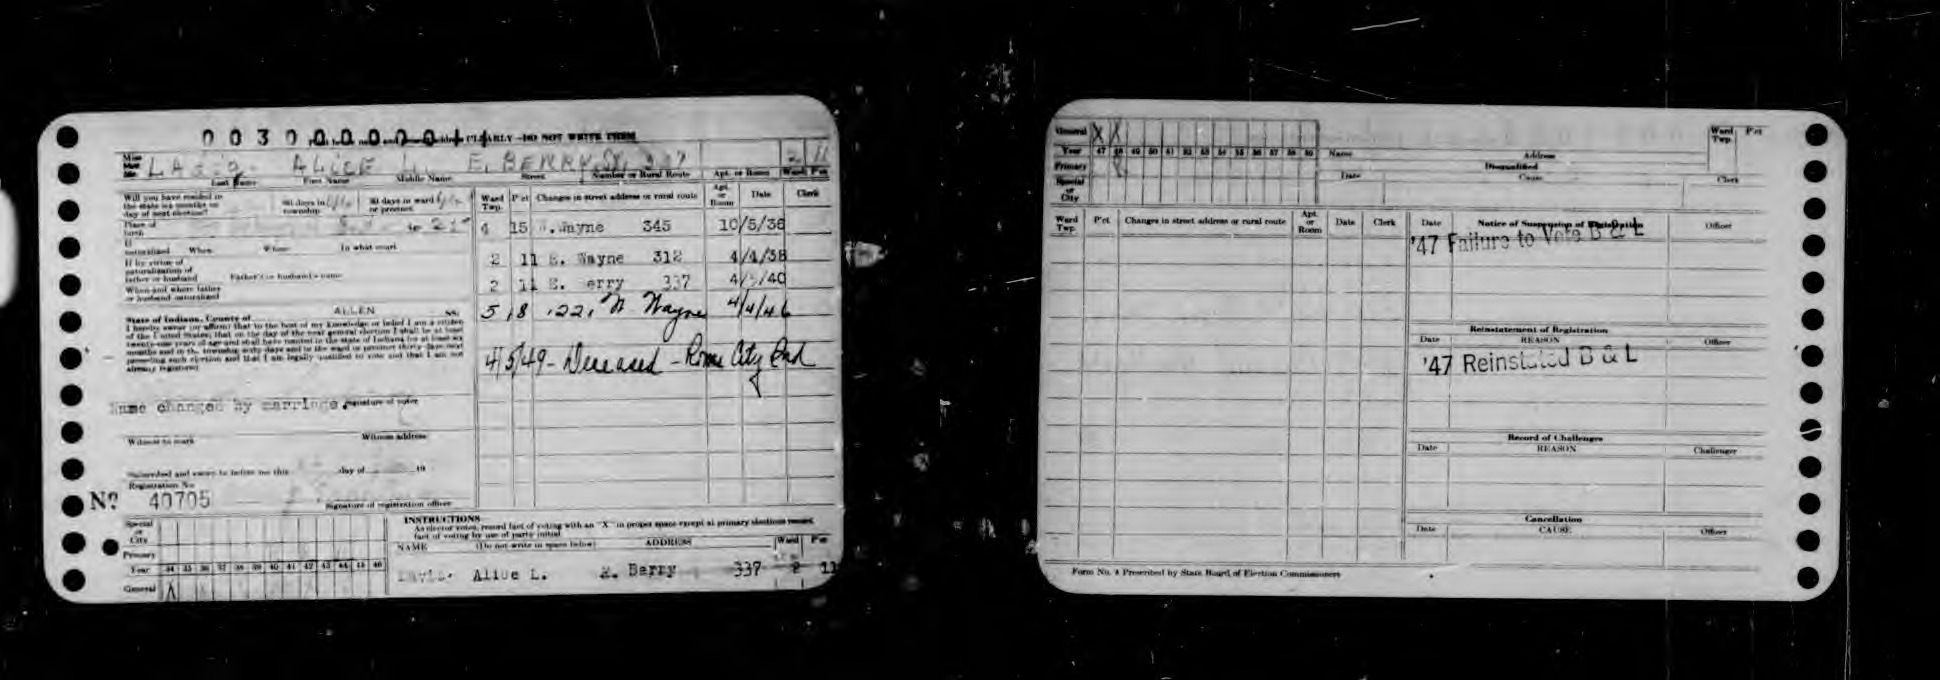 CLEARLY—DO NOT WRITE THEM
ALICE L. E. BERRY St. 337 2 11
Last Name First Name Middle Name Street Number or Rural Route Apt. or Room Ward Pct
Will you have resided in
the state six months on
day of next election? 60 days in
township 30 days in ward
or precinct
Ward
Twp. P'ct Changes in street address or rural route Apt.
or
Room Date Clerk
Place of
birth
4 15 W. Wayne 345 10/5/36
If
naturalized When Where In what court
2 11 E. Wayne 312 4/4/38
If by virtue of
naturalization of
father or husband Father's or husband's name
2 11 E. erry 337 40
When and where father
or husband naturalized
5 8 N Wayne 4/4/46
State of Indiana, County of ALLEN SS:
I hereby swear (or affirm) that to the best of my knowledge or belief I am a citizen
of the United States; that on the day of the next general election I shall be at least
twenty-one years of age and shall have resided in the state of Indiana for at least six
months and in the township sixty days and in the ward or precinct thirty days next
preceding such election and that I am legally qualified to vote and that I am not
already registered
4/5/49 - Deceased - Rome City Ind
Name changed by marriage. Signature of voter
Witness to mark Witness address
Subscribed and sworn to before me this day of 19
Registration No.
Nº 40705 Signature of registration officer
Special
or
City
Primary
Year 34 35 36 37 38 39 40 41 42 43 44 45 46
General X
INSTRUCTIONS
As elector votes, record fact of voting with an "X" in proper space except at primary elections record
fact of voting by use of party initial
NAME (Do not write in space below) ADDRESS Ward P'ct
Alice L. E. Berry 337 2 11
General X X
Year 47 48 49 50 51 52 53 54 55 56 57 58 59
Primary
Special
or
City
Name Address Ward
Twp. P'ct
Disqualified
Date Cause Clerk
Ward
Twp. P'ct Changes in street address or rural route Apt.
or
Room Date Clerk
Date Notice of Suspension of Registration Officer
'47 Failure to Vote B & L
Reinstatement of Registration
Date REASON Officer
'47 Reinstated B & L
Record of Challenges
Date REASON Challenger
Cancellation
Date CAUSE Officer
Form No. 4 Prescribed by State Board of Election Commissioners